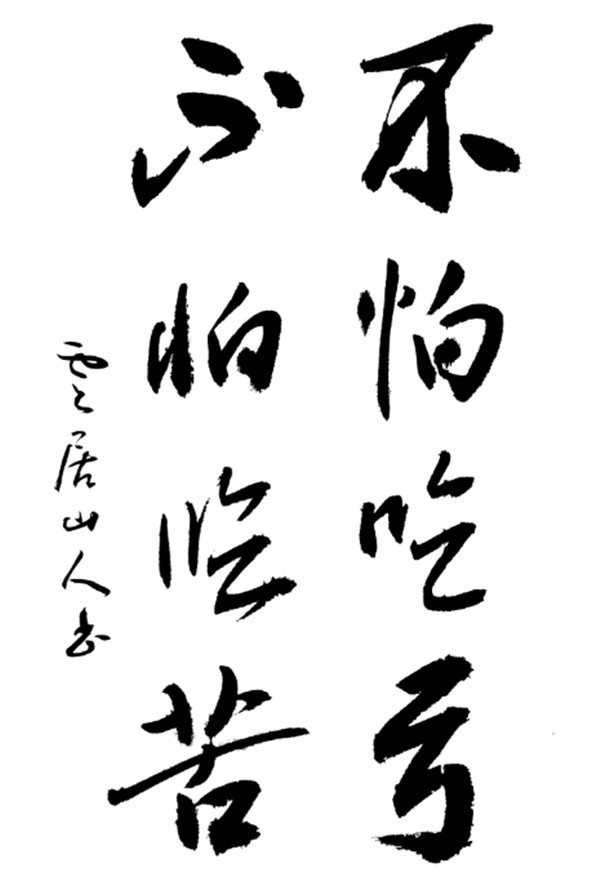 不怕吃亏
不怕吃苦
云居山人书